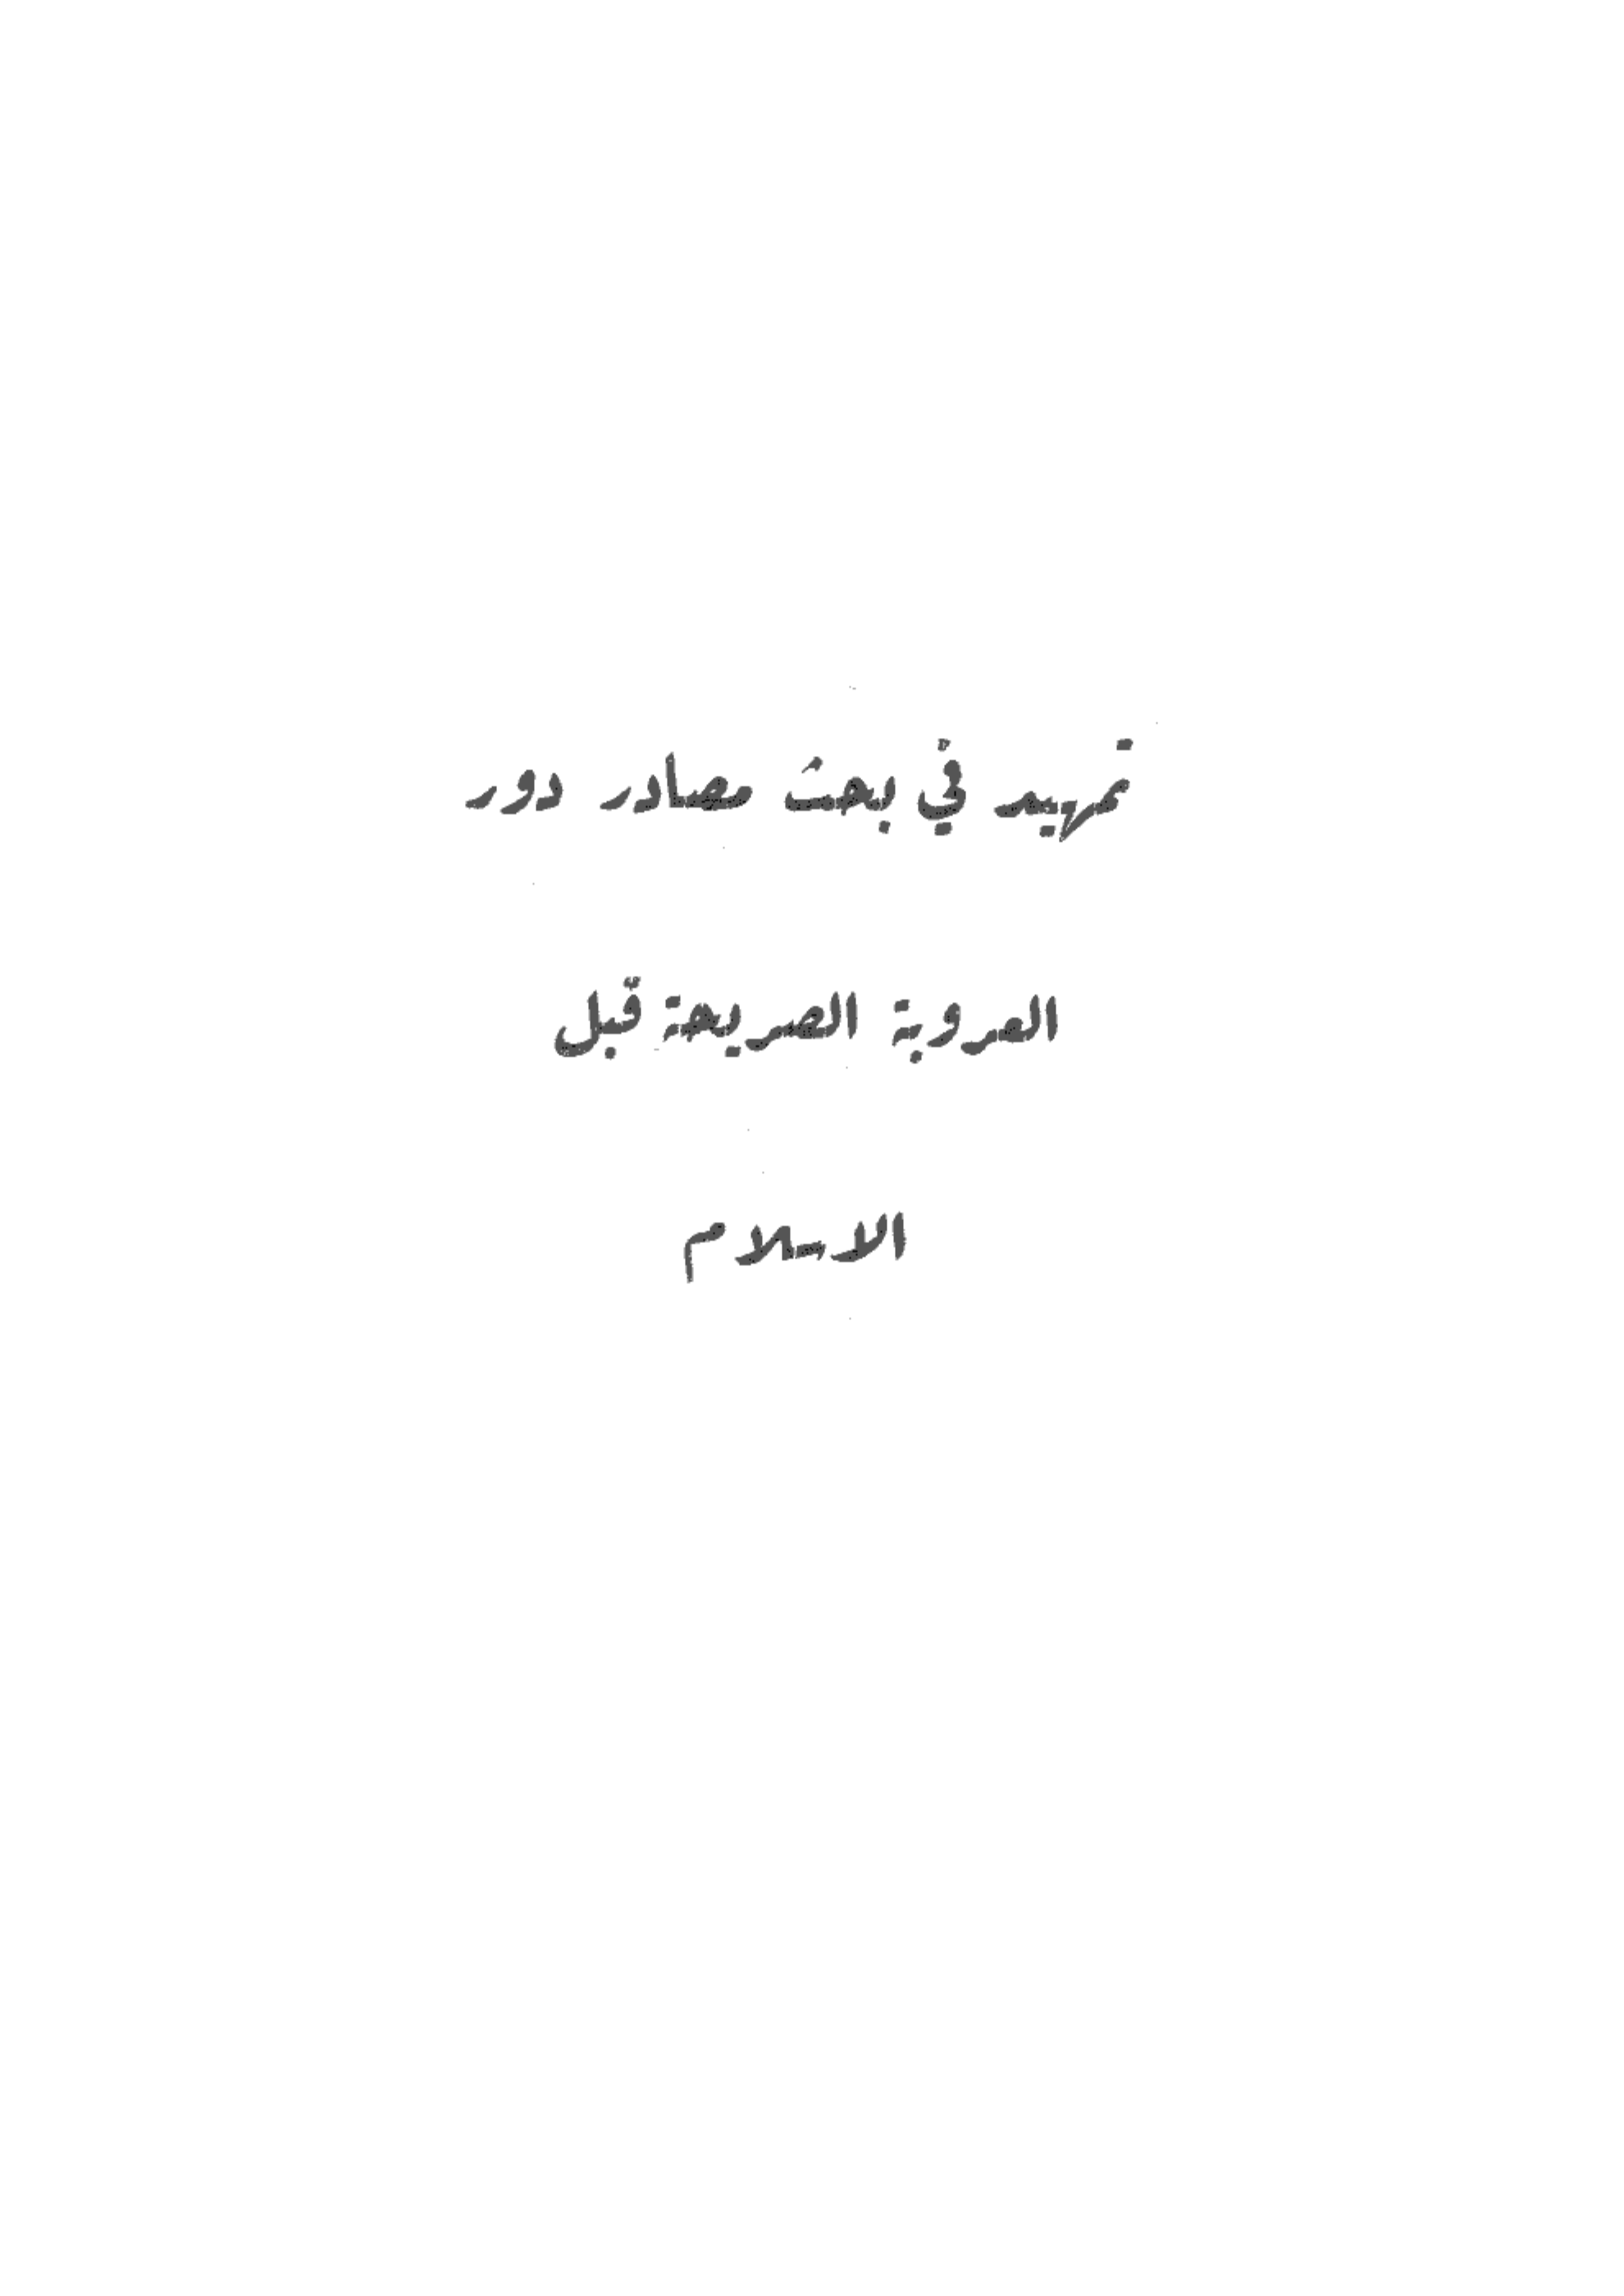 تمهيد في بحث مصادر دور
العروبة الصريحة قبل
الاسلام